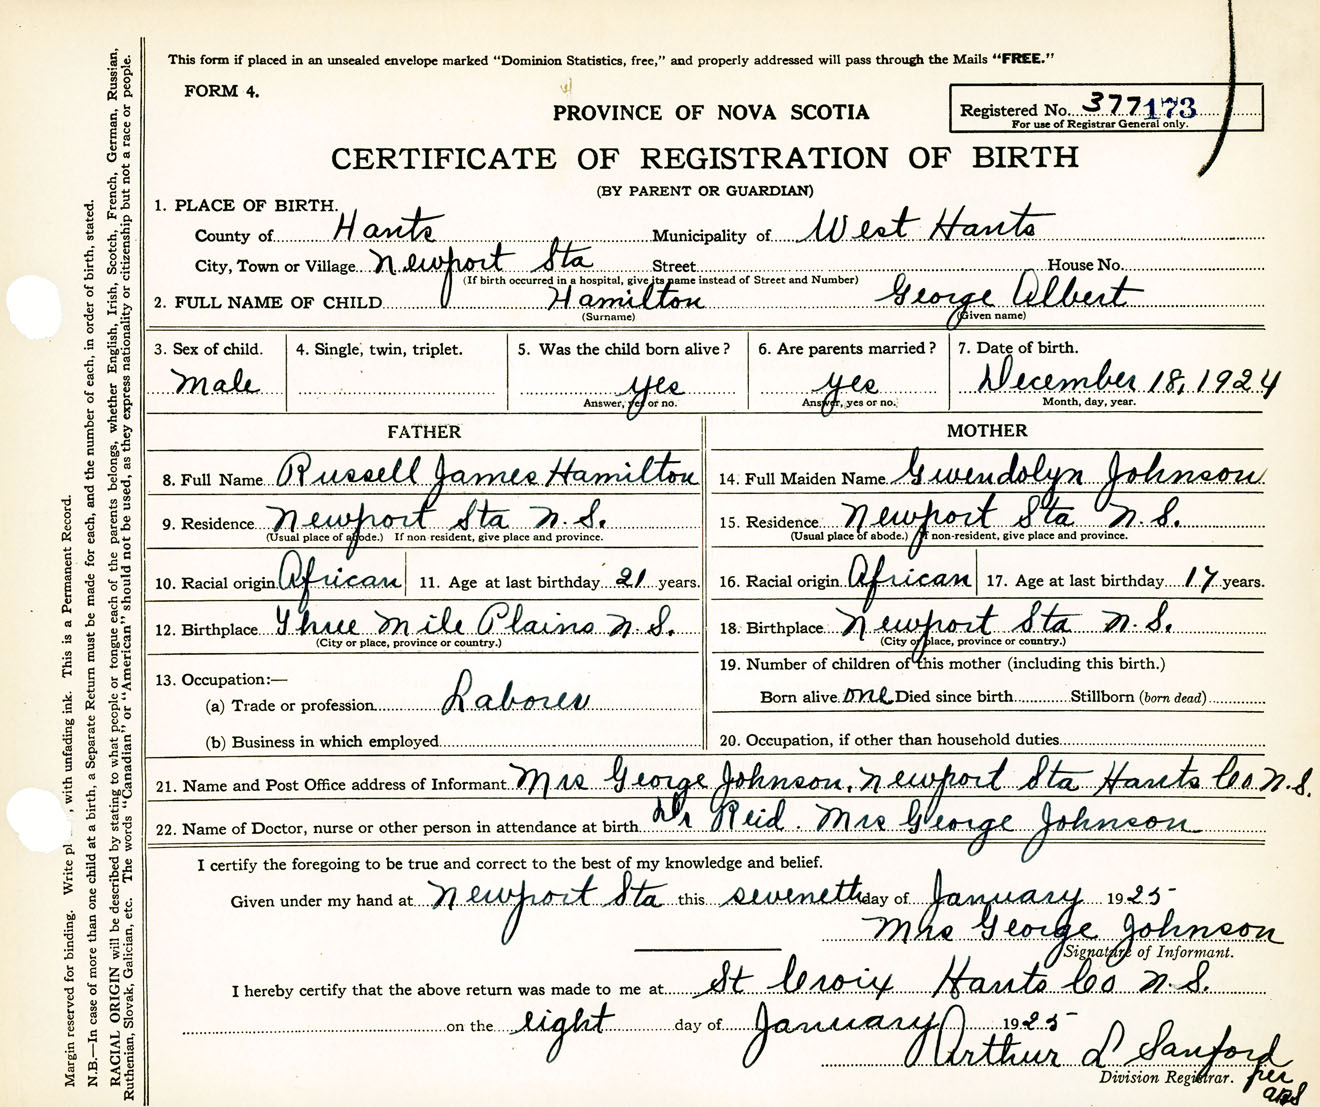 This form if placed in an unsealed envelope marked "Dominion Statistics, free," and properly addressed will pass through the Mails "FREE."
FORM 4.
PROVINCE OF NOVA SCOTIA
Registered No. 377 173
For use of Registrar General only.
CERTIFICATE OF REGISTRATION OF BIRTH
(BY PARENT OR GUARDIAN)
1. PLACE OF BIRTH.
County of Hants Municipality of West Hants
City, Town or Village Newport Sta Street House No.
(If birth occurred in a hospital, give its name instead of Street and Number)
2. FULL NAME OF CHILD Hamilton George Albert
(Surname) (Given name)
3. Sex of child. 4. Single, twin, triplet. 5. Was the child born alive? 6. Are parents married? 7. Date of birth.
Male yes yes December 18, 1924
Answer, yes or no. Answer, yes or no. Month, day, year.
FATHER MOTHER
8. Full Name Russell James Hamilton 14. Full Maiden Name Gwendolyn Johnson
9. Residence Newport Sta N.S. 15. Residence Newport Sta N.S.
(Usual place of abode.) If non-resident, give place and province. (Usual place of abode.) If non-resident, give place and province.
10. Racial origin African 11. Age at last birthday 21 years. 16. Racial origin African 17. Age at last birthday 17 years.
12. Birthplace Three Mile Plains N.S. 18. Birthplace Newport Sta N.S.
(City or place, province or country.) (City or place, province or country.)
13. Occupation:— 19. Number of children of this mother (including this birth.)
(a) Trade or profession Laborer Born alive one Died since birth Stillborn (born dead)
(b) Business in which employed 20. Occupation, if other than household duties
21. Name and Post Office address of Informant Mrs George Johnson, Newport Sta Hants Co N.S.
22. Name of Doctor, nurse or other person in attendance at birth Dr Reid. Mrs George Johnson
I certify the foregoing to be true and correct to the best of my knowledge and belief.
Given under my hand at Newport Sta this seveneth day of January 1925
Mrs George Johnson
Signature of Informant.
I hereby certify that the above return was made to me at St Croix Hants Co N.S.
on the eight day of January 1925
Arthur L Sanford
Division Registrar. per
Margin reserved for binding. Write pl , with unfading ink. This is a Permanent Record.
N.B.—In case of more than one child at a birth, a Separate Return must be made for each, and the number of each, in order of birth, stated.
RACIAL ORIGIN will be described by stating to what people or tongue each of the parents belongs, whether English, Irish, Scotch, French, German, Russian,
Ruthenian, Slovak, Galician, etc. The words "Canadian" or "American" should not be used, as they express nationality or citizenship but not a race or people.